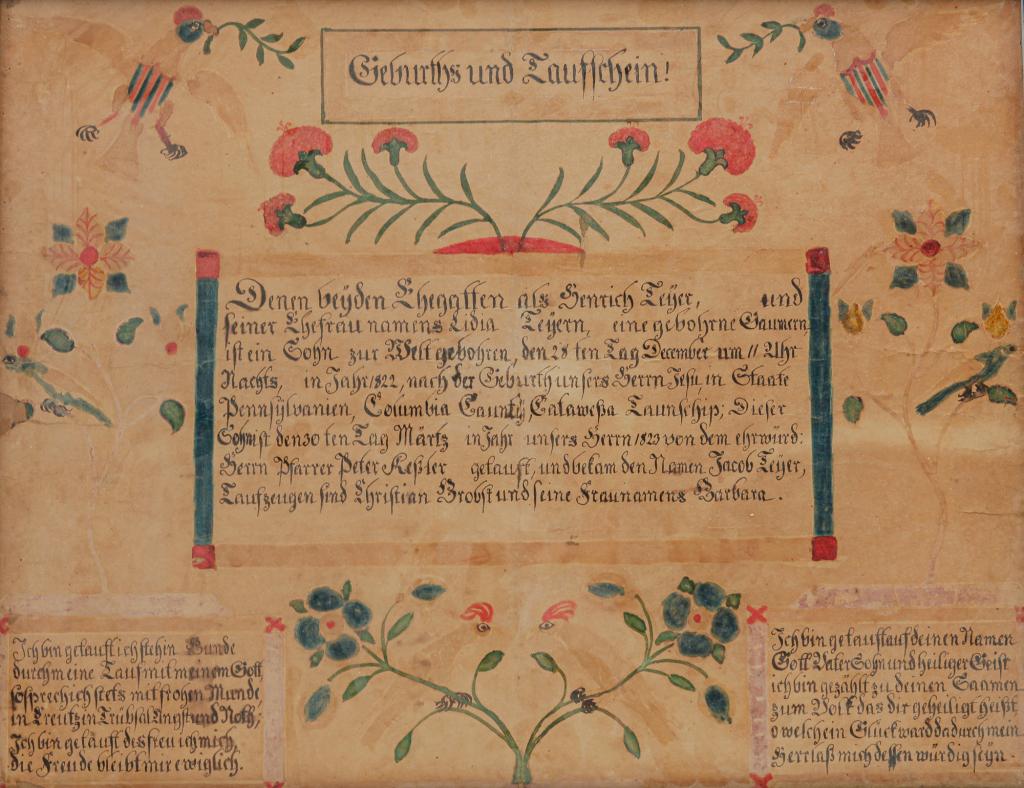 Geburths und Taufschein!
Denen beyden Ehegatten als Henrich Teyer, und
seiner Ehefrau namens Lidia Teyern, eine gebohrne Gaumern
ist ein Sohn zur Welt gebohren, den 28 ten Tag December um 11 Uhr
Nachts, in Jahr 1822, nach der Geburth unsers Herrn Jesu in Staate
Pennsylvanien, Columbia Caunty Cataweßa Taunschip; Dieser
Sohn ist den 30 ten Tag Märtz in Jahr unsers Herrn 1823 von dem ehrwürd:
Herrn Pfarrer Peter Keßler getauft, und bekam den Namen Jacob Teyer,
Taufzeugen sind Christian Brobst und seine Frau namens Barbara.
Ich bin getauft ich steh in Bunde
durch meine Tauf mit meinem Gott
so sprech ich stets mit frohen Munde
in Creutz in Trübsal Angst und Noth,
Ich bin getauft des freu ich mich,
die Freude bleibt mir ewiglich.
Ich bin getauft auf deinen Namen
Gott Vater Sohn und heiliger Geist
ich bin gezählt zu deinen Saamen
zum Volk das dir geheiligt heißt
o welch ein Glück ward dadurch mein
Herr laß mich dessen würdig seyn.